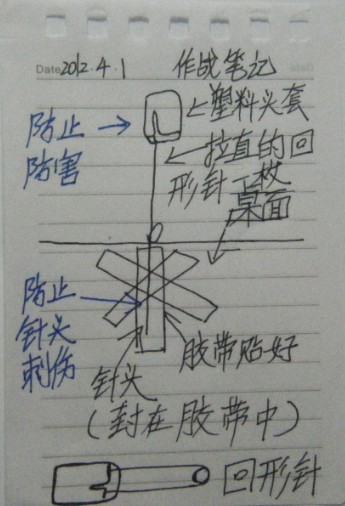 Date 2012.4.1
作战笔记
塑料头套
防止
防害
拉直的回
形针一枚
桌面
防止
针头
刺伤
胶带贴好
针头
(封在胶带中)
回形针